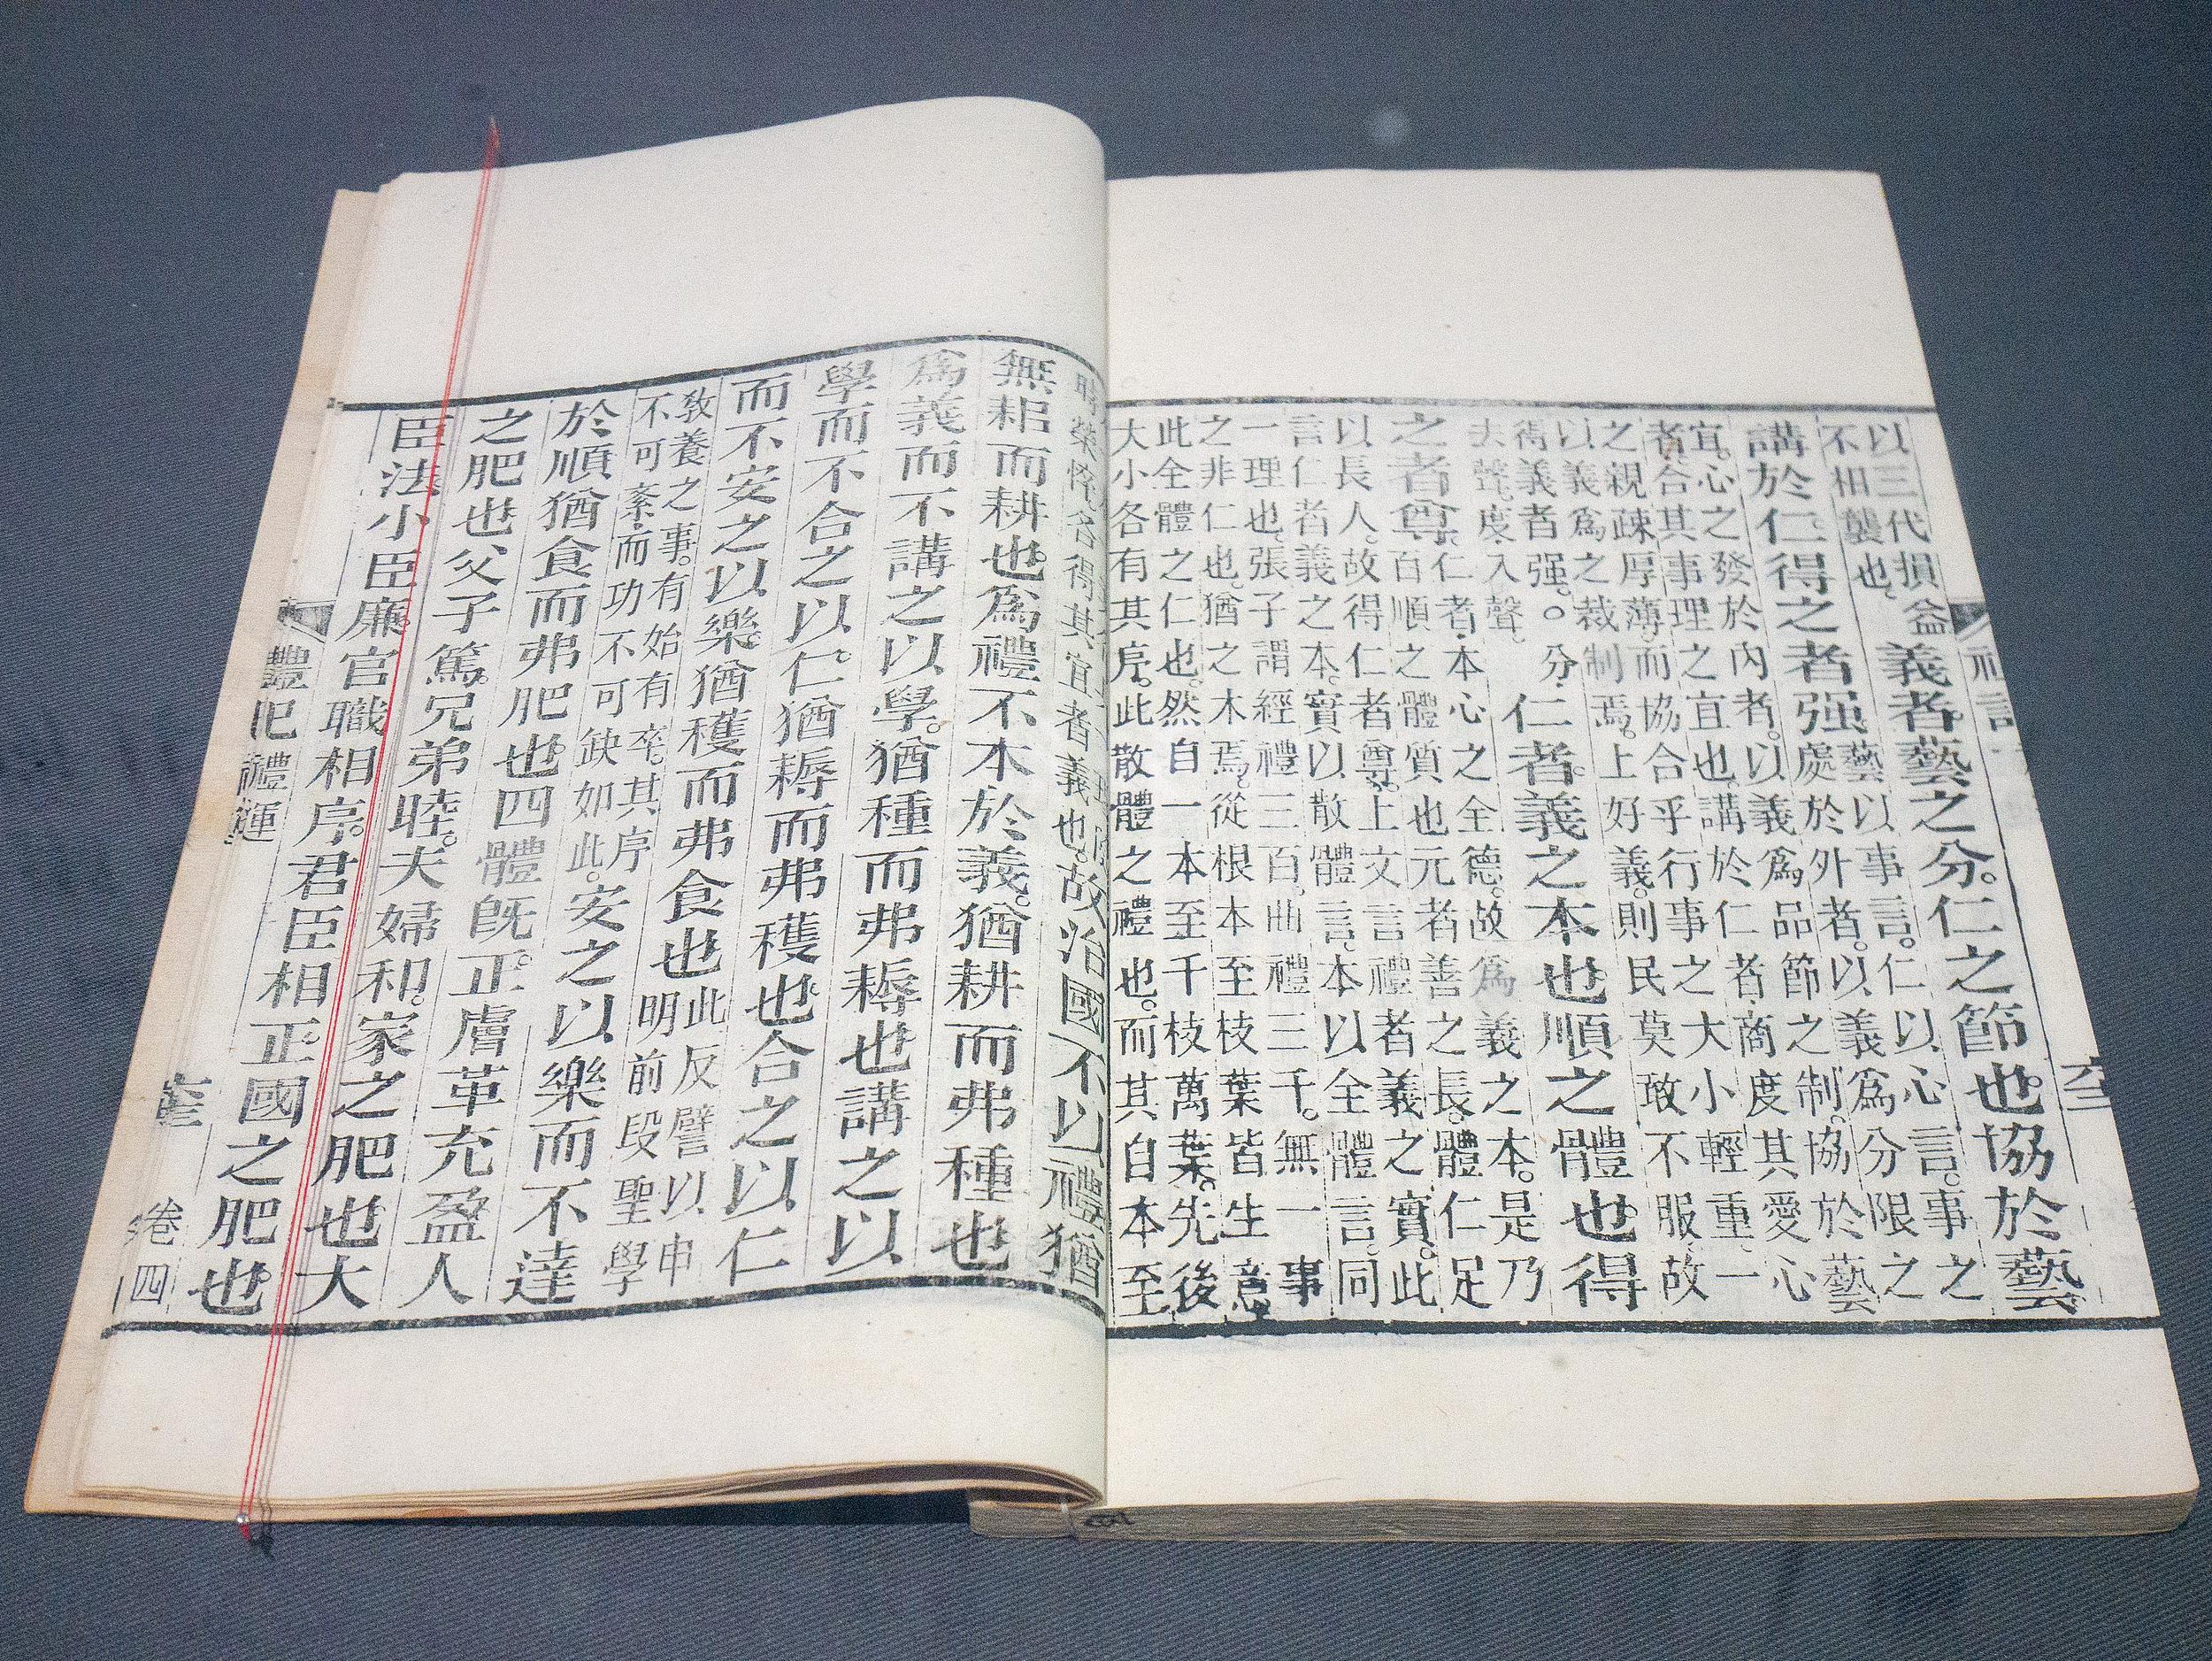 以三代損益
不相襲也
義者。藝之分。仁之節也。協於藝
講於仁。得之者强。
藝以事言。仁以心言。事之
處於外者。以義爲分限之
宜。心之發於内者。以義爲品節之制。協於藝
者。合其事理之宜也。講於仁者。商度其愛心
之親疎厚薄。而協合乎行事之大小輕重。一
以義爲之裁制焉。上好義。則民莫敢不服。故
得義者强。○分
去聲。度入聲。
仁者。義之本也順之體也。得
之者尊。
仁者。本心之全德。故爲義之本。是乃
百順之體質也元者善之長。體仁足
以長人。故得仁者尊。上文言禮者義之實。此
言仁者義之本。實以散體言。本以全體言。同
一理也。張子謂經禮三百。曲禮三千。無一事
之非仁也。猶之木焉。從根本至枝葉皆生意
此全體之仁也。然自一本至千枝萬葉。先後
大小各有其序。此散體之禮也。而其自本至
時榮悴各得其宜者義也。故治國不以禮猶
無耜而耕也。爲禮不本於義。猶耕而弗種也
爲義而不講之以學。猶種而弗耨也講之以
學而不合之以仁。猶耨而弗穫也。合之以仁
而不安之以樂。猶穫而弗食也
此反譬以申
明前段聖學
敎養之事。有始有卒。其序
不可紊。而功不可缺如此。
安之以樂而不達
於順猶食而弗肥也。四體旣正。膚革充盈人
之肥也。父子篤。兄弟睦。夫婦和。家之肥也大
臣法小臣廉。官職相序。君臣相正。國之肥也。
禮記 禮運 卷四